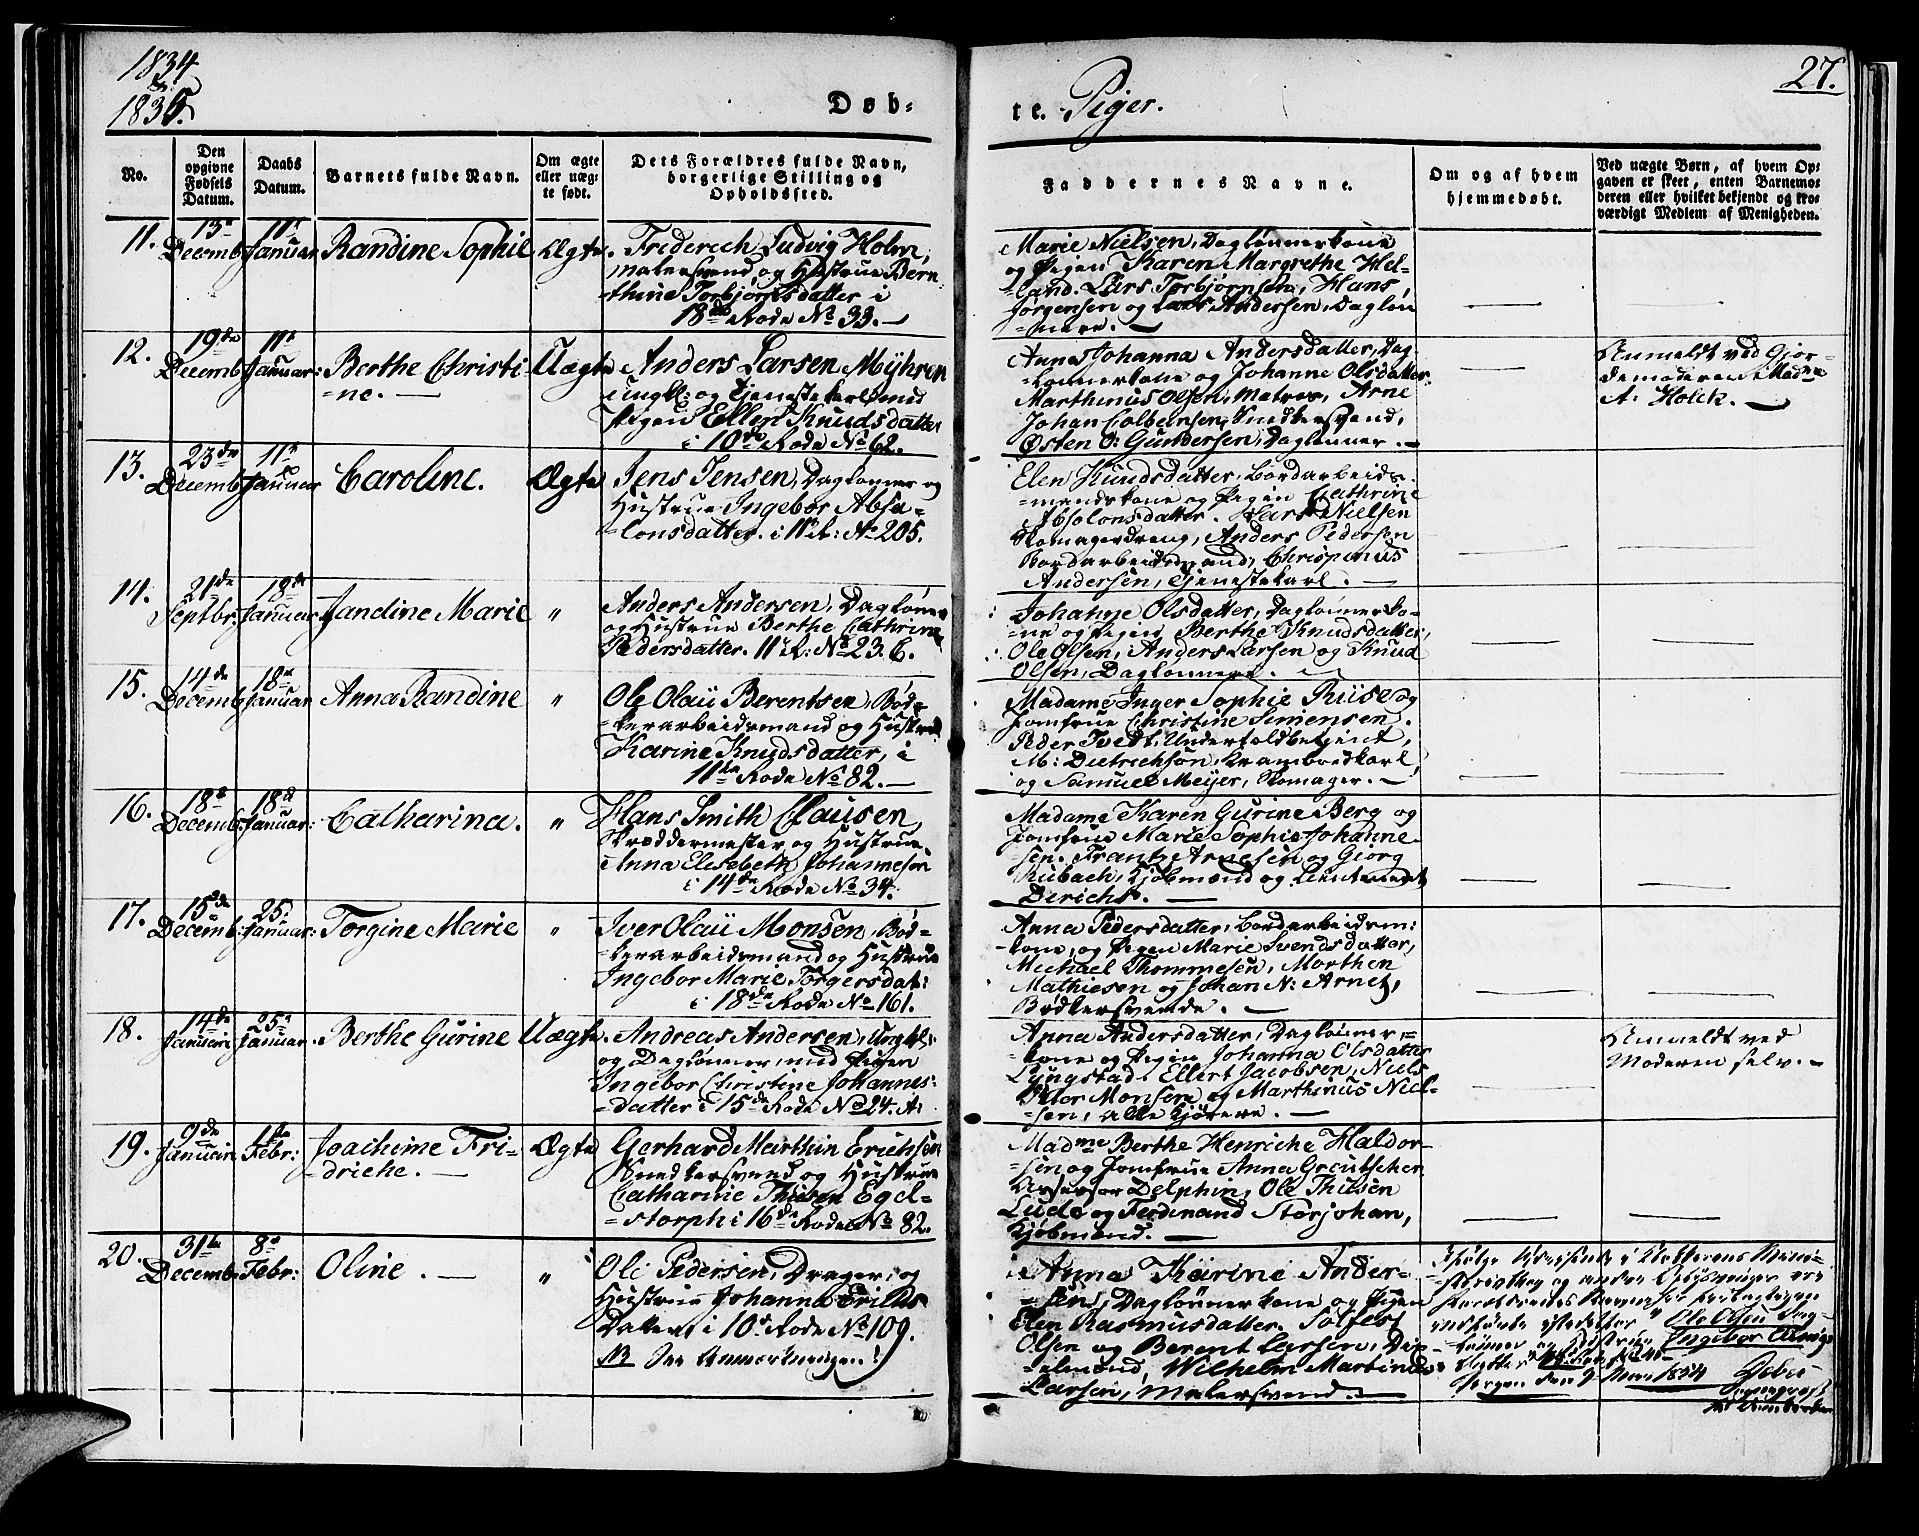 1834
&
1835.
27.
Døb-
te. Piger.
No.
Den opgivne Fødsels Datum.
Daabs Datum.
Barnets fulde Navn.
Om ægte eller uægte født.
Dets Forældres fulde Navn, borgerlige Stilling og Opholdssted.
Faddernes Navne.
Om og af hvem hjemmedøbt.
Ved uægte Børn, af hvem Opgaven er skeet, enten Barnemoderen eller hvilket bekjendt og troværdigt Medlem af Menigheden.
11.
Decemb.
11te Januar
Randine Sophie
Ægte.
Friderich Ludvig Holm,
Malersvend og Hustrue Bern-
-thine Torbjørnsdatter i
18de Rode No 33.—
Marie Nielsen, Dagløn̄erkone
og Pigen Karen Margrethe Hel-
-land. Lars Torbjørnsen, Hans
Jørgensen og Lars Andersen, Dagløn-
-nere.—
12.
19de Decemb.
11te Januar:
Berthe Christi-
-ne.—
Uægte
Anders Larsen Myhren
Ungk: og Tjenestekarl med
Pigen Ellen Knudsdatter
i 10de Rode No 62.
Anne Johanna Andersdatter, Dag-
-lønnerkone og Johanne Olsdatter.
Marthinus Olsen, Matros, Arne
Johan Colbensen, Snedkersvend,
Østen O: Gundersen, Dagløn̄er.—
Anmeldt ved Gjor-
demoderen Madme
A. Holck.—
13.
23de Decemb.
11te Januar
Caroline.
Ægte
Jens Jensen, Dagløn̄er og
Hustrue Ingebor Absa-
-lonsdatter. i 11 R: No 205.
Elen Knudsdatter, Bordarbeids-
-mandskone og Pigen Cathrine
Absolonsdatter. Lars Nielsen
Skomagerdreng, Anders Pedersen
Bordarbeidsmand, Chrispinus
Andersen, Tjenestekarl.—
14.
21de Septbr.
18de Januar
Jandine Marie
"
Anders Andersen, Dagløn̄er
og Hustrue Berthe Cathrine
Pedersdatter. 11 R: No 23. 6.
Johanne Olsdatter, Dagløn̄erko-
-ne og Pigen Berthe Knudsdatter,
Ole Olsen, Anders Larsen og Knud
Olsen, Dagløn̄ere.
15.
14de Decemb.
18de Januar
Anna Randine
"
Ole Olaii Berentsen, Bød-
-kerarbeidsmand og Hustrue
Karine Knudsdatter, i
11te Rode No 82.—
Madame Inger Sophie Riise og
Jomfrue Christine Simensen.
Peder Tvedt, Undertoldbetjent,
M: Dietrichson, Krambodkarl
og Samuel Meyer, Skomager.—
16.
18de Decemb.
18de Januar:
Catharina.
"
Hans Smith Clausen,
Skræddermester og Hustrue
Anna Elisebeth Johannesen
i 14de Rode No 34.
Madame Karen Gurine Berg og
Jomfrue Marie Sophie Johanne-
-sen. Frantz Arnesen og Georg
Rubach, Kjøbmænd og Lieutenant
Derichs.—
17.
15de Decemb:
25: Januar:
Torgine Marie
"
Iver Olaii Monsen, Bød-
-kerarbeidsmand og Hustrue
Ingebor Marie Torgersdat:
i 18de Rode No 161.
Anna Pedersdatter, Bordarbeidsm:
-kone, og Pigen Marie Svendsdatter,
Michael Thommesen, Morthen
Mathiesen og Johan N: Arnez,
Bødkersvende.—
18.
14de Januari
25: Januar.
Berthe Gurine
Uægte.
Andreas Andersen, Ungkl:
og Dagløn̄er, med Pigen
Ingebor Christine Johannes-
-datter i 15de Rode No 24. A:
Anna Andersdatter, Dagløn̄er-
-kone og Pigen Johanna Olsdatter
Lyngstad. Ellert Jacobsen, Niels
Peter Monsen og Marthinus Niel-
-sen, alle Kjørere.—
Anmeldt ved
Moderen selv.—
19.
9de Januari
1te Febr:
Joachime Fri-
-driche.—
Ægte
Gerhard Marthin Erichsen
Snedkersvend og Hustrue
Catharine Thiesen Egel-
-storph i 16de Rode No 82.
Madme Berthe Henriche Haldor-
-sen og Jomfrue Anna Greutscher
Assessor Delphin, Ole Thiesen
Lude og Ferdinand Storjohan,
Kjøbmænd.—
20.
31te Decemb.
8de Febr:
Oline.—
"
Ole Pedersen, Drager, og
Hustrue Johanna Erichs
Datter i 10de Rode No 109.
NB See Anmærkningen!
Anna Karine Ander-
-sen, Dagløn̄erkone og Pigen
Elen Rasmusdatter. Solfest
Olsen og Berent Larsen,
Wilhelm Martinus
Larsen, Malersvend.—
Ifølge
og andre Oplysninger ere
Ole Olsen Dag-
-lønner og Hustrue Ingebor
Bergen den 9 1854